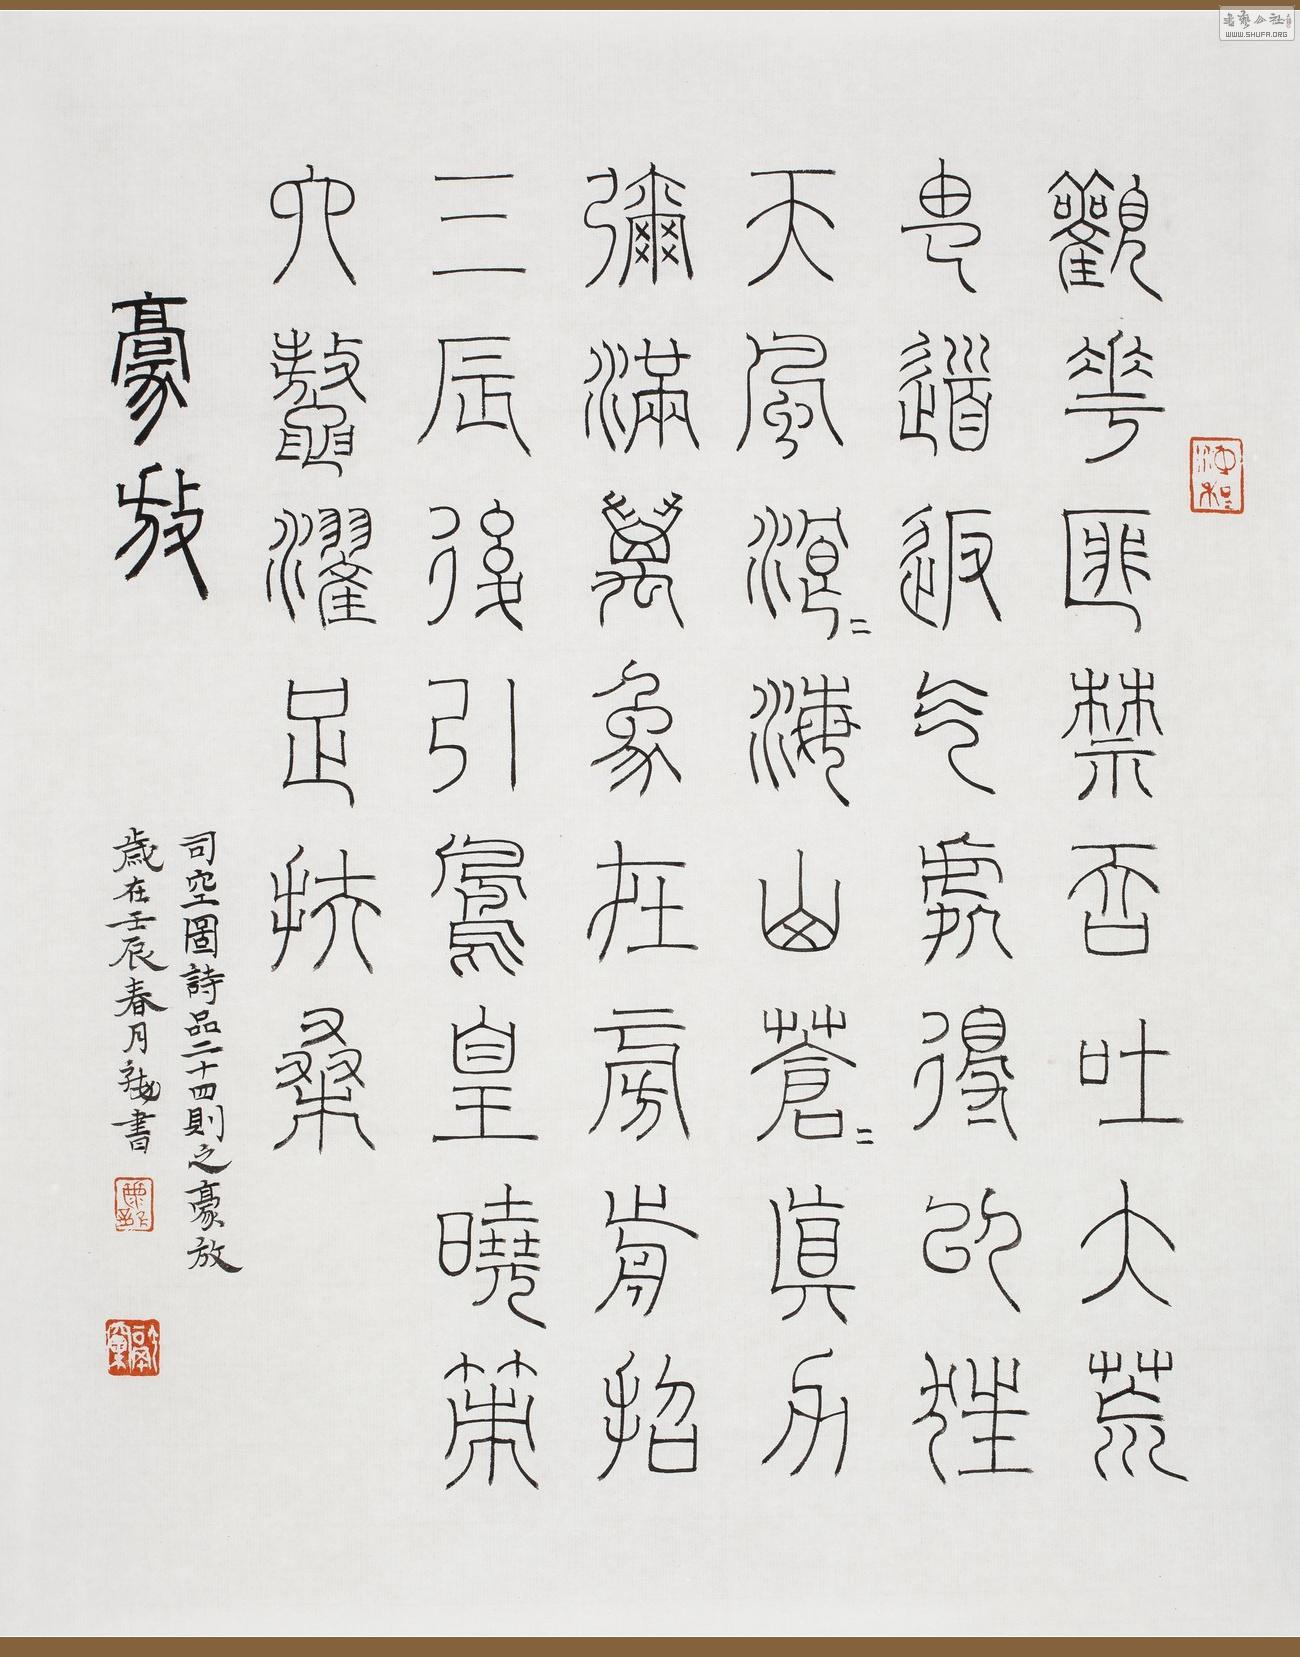 觀華匪禁吞吐大荒
由道返气處得以狂
天風浪=海山蒼=眞力
彌滿萬象在旁前招
三辰後引鳳皇曉策
六鼇濯足扶桑
豪放
司空圖詩品二十四則之豪放
歲在壬辰春月書
WWW.SHUFA.ORG